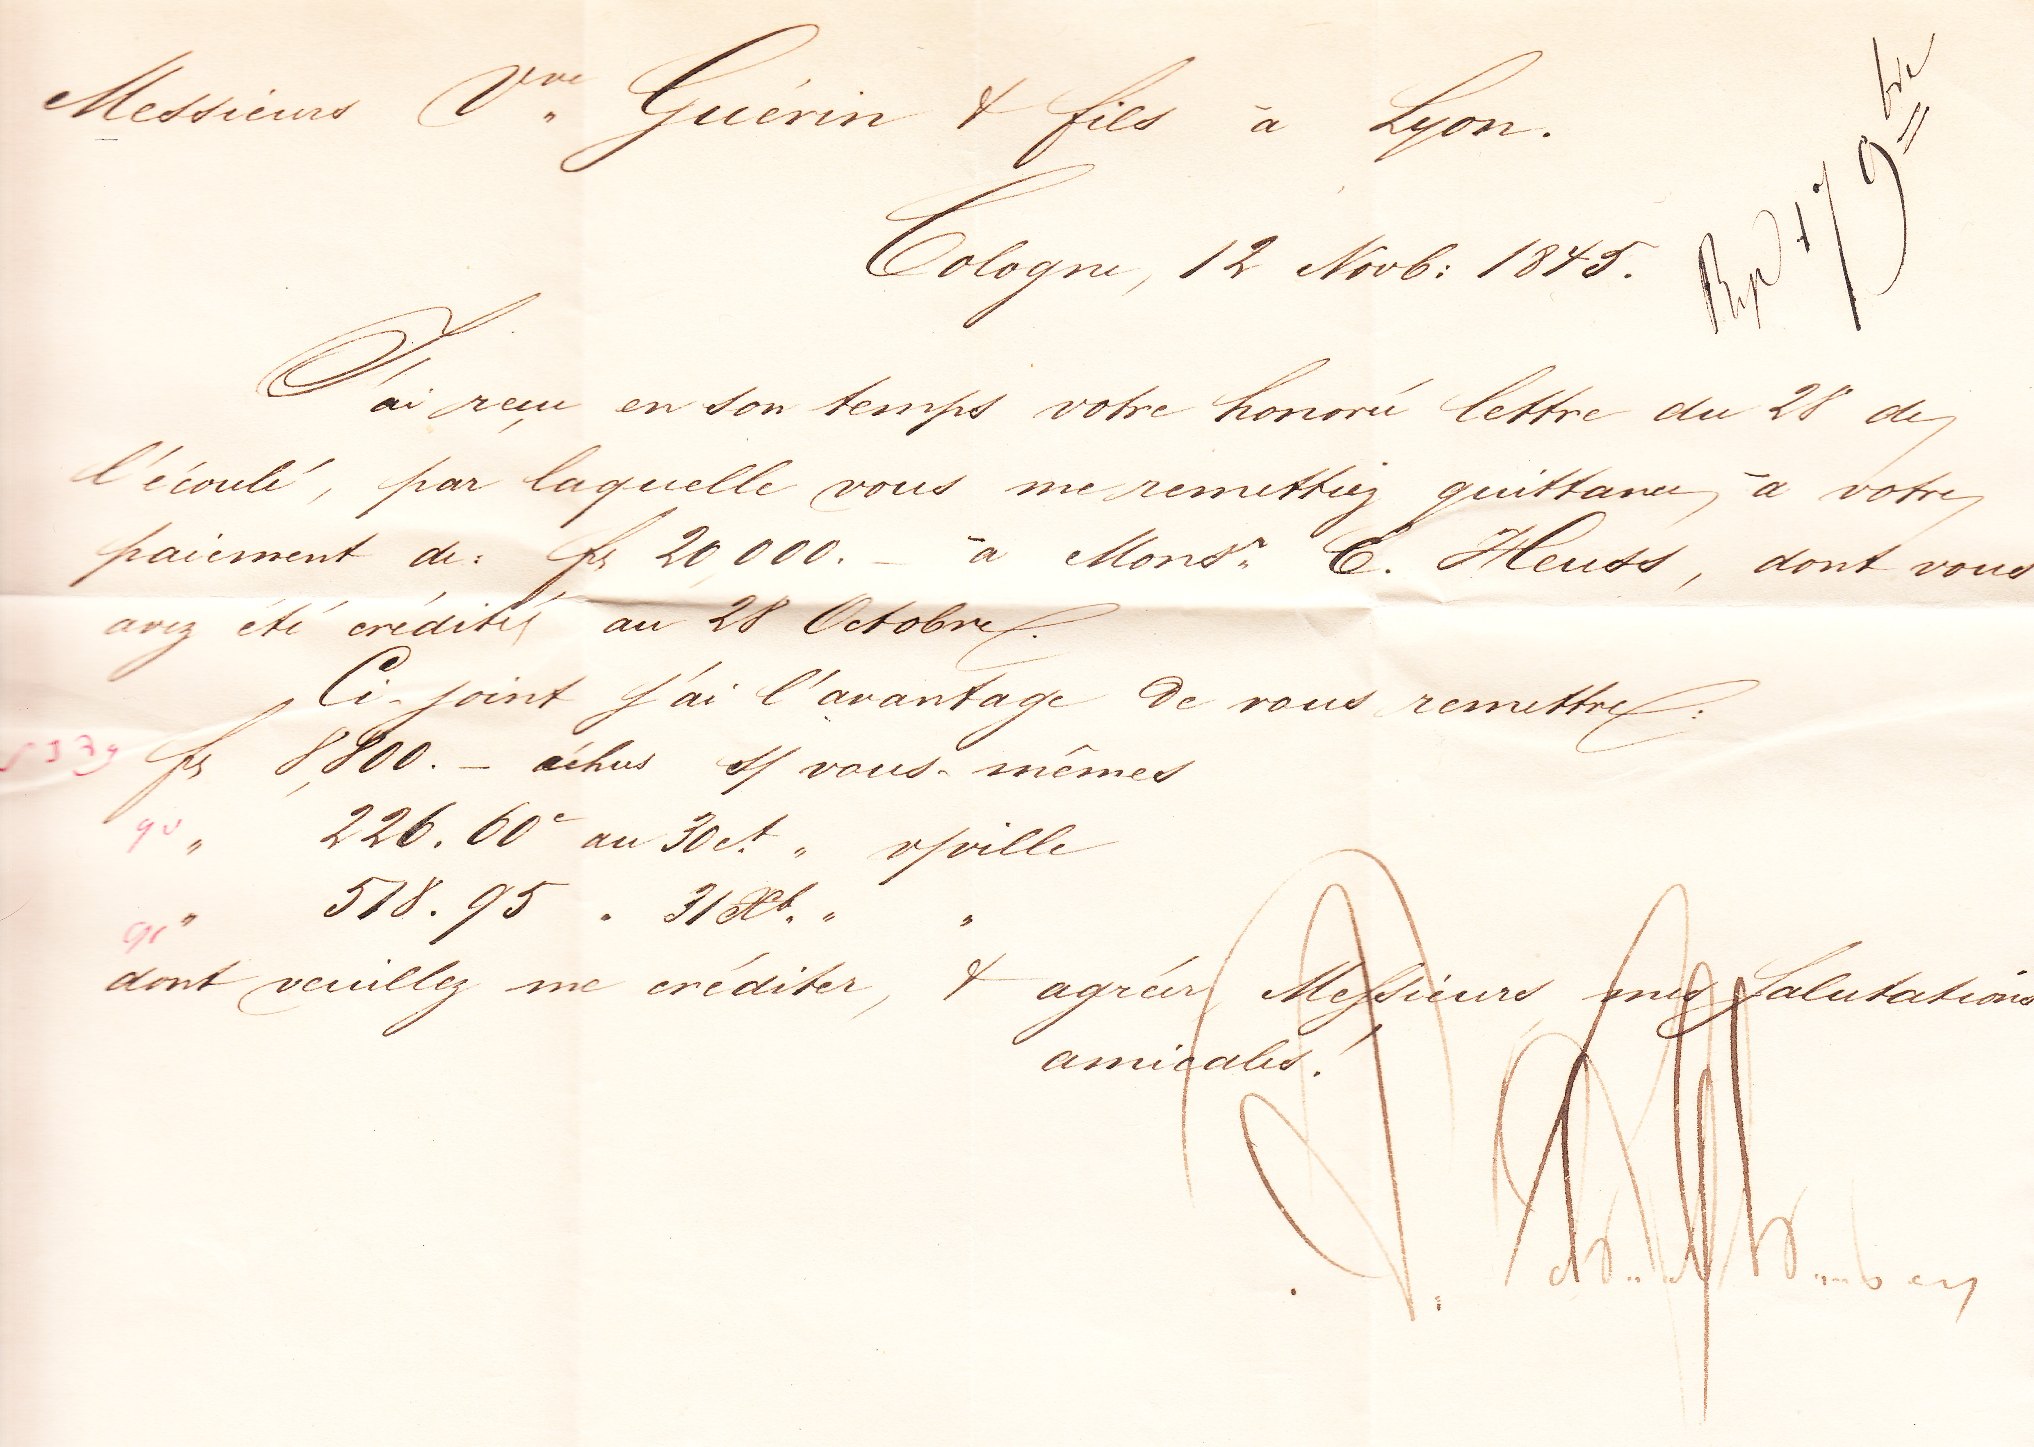 Messieurs Vve Guérin & fils à Lyon.
Cologne, 12 Novb: 1845.
Rep 17 9bre
J'ai reçu en son temps votre honoré lettre du 28 de
l'écoulé, par laquelle vous me remettiez quittance, à votre
paiement de: fs 20,000. – à Monsr. C. Heuss, dont vous
avez été crédités au 28 Octobre.
Ci-joint j'ai l'avantage de vous remettre:
fs 8,800. – échus s/ vous-mêmes
" 226. 60c au 30 ct. " v/ville
" 518. 95 " 31 Xb. " "
dont veuillez me créditer, & agréer Messieurs mes salutations
amicales.